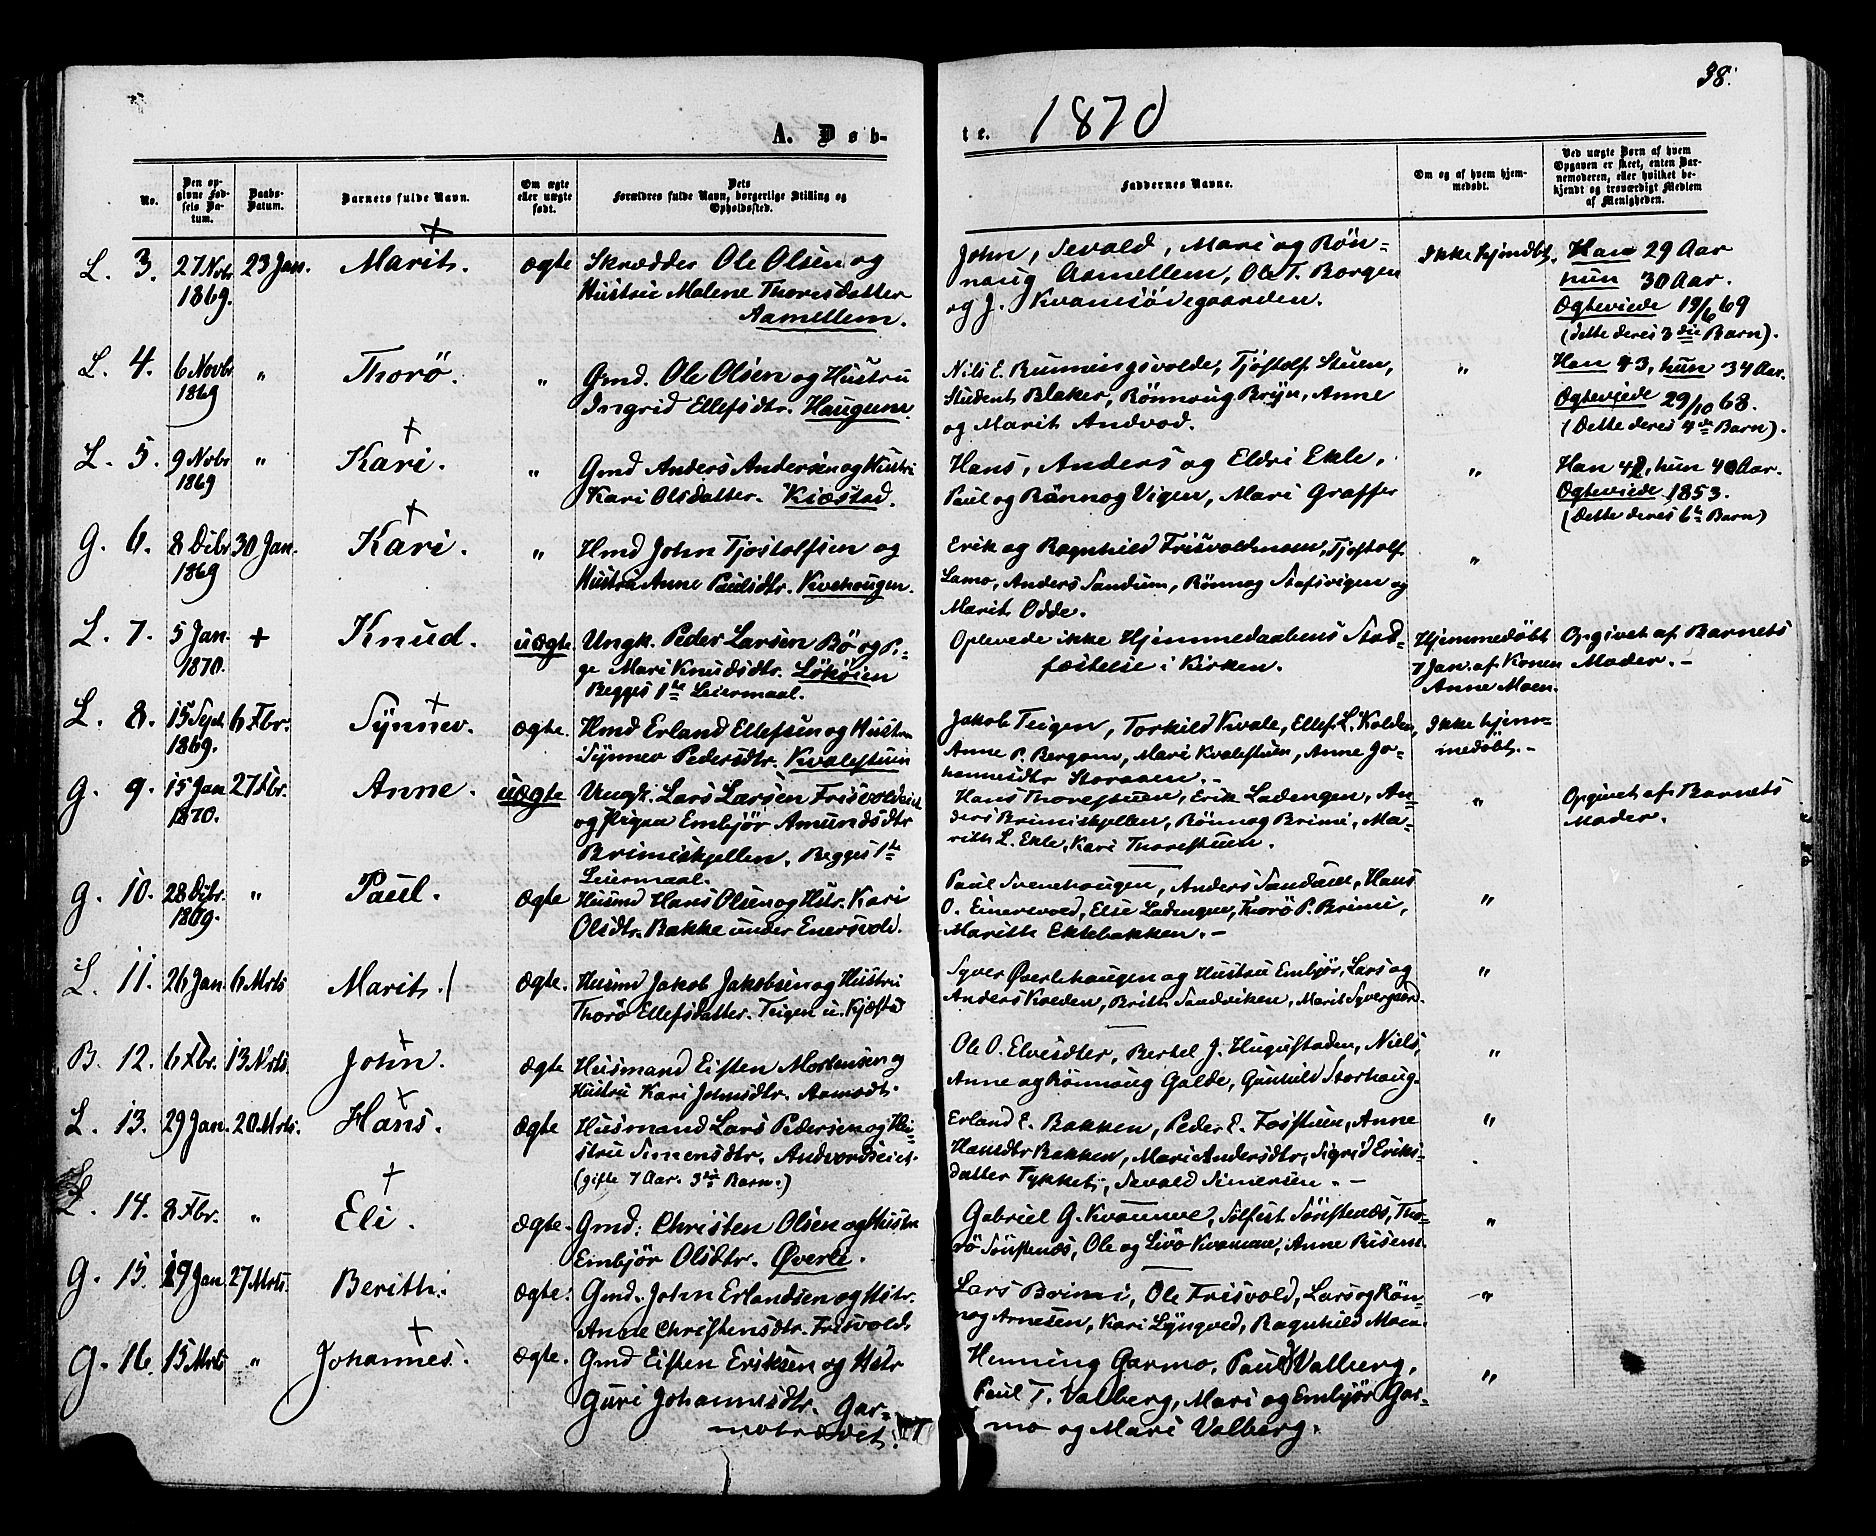 38.
A. Døb-
te. 1870
No.
Den op-
givne Fød-
sels Da-
tum.
Daabs-
Datum.
Barnets fulde Navn.
Om ægte
eller uægte
født.
Dets
Forældres fulde Navn, borgerlige Stilling og
Opholdssted.
Faddernes Navne.
Om og af hvem hjem-
medøbt.
Ved uægte Børn af hvem
Opgaven er skeet, enten Bar-
nemoderen, eller hvilket be-
kjendt og troværdigt Medlem
af Menigheden.
L. 3. 27 Novbr 1869. 23 Jan. Marit. ægte Skrædder Ole Olsen og
Hustru Malene Thoresdatter
Aamellem.
John, Sevald, Mari og Rön-
naug Aamellem, Ole T. Borgen
og J. Kvamsödegaarden.
Ikke hjmdbt.
Han 29 Aar
hun 30 Aar.
Ægteviede 19/6 69
(dette deres 3die Barn).
L. 4. 6 Novbr 1869 " Thorö. " Gmd. Ole Olsen og Hustru
Ingrid Ellefsdtr. Haugum.
Nils E. Runningsvolde, Tjöstolf Stuen,
Student Blaker, Rönnoug Bryn, Anne
og Marit Andvod.
"
Han 43, hun 34 Aar.
Ægteviede 29/10 68.
(Dette deres 4de Barn).
L. 5. 9 Novbr 1869 " Kari. " Gmd Anders Andersen og Hustru
Kari Olsdatter. Kiæstad.
Hans, Anders og Eldri Ekle,
Paul og Rönnog Vigen, Mari Graffer
"
Han 42, hun 40 Aar.
Ægteviede 1853.
(Dette deres 6te Barn)
G. 6. 8 Dcbr 1869 30 Jan. Kari. " Hmd John Tjostolfsen og
Hustru Anne Paulsdtr. Kvehougen.
Erik og Ragnhild Frisvoldmoen, Tjostolf
Lamo, Anders Sandum, Rönnog Stafsvigen og
Marit Odde.
"
L. 7. 5 Jan. 1870. + Knud. uægte Ungk. Peder Larsen Bö og Pi-
ge Mari Knudsdtr. Lököien
Begges 1te Leiermaal.
Oplevede ikke Hjemmedaabens Stad-
fæstelse i Kirken.
Hjemmedöbt
7 Jan. af Konen
Anne Moen.
Opgivet af Barnets
Moder. -
L. 8. 15 Sept 1869. 6 Fbr. Synnev. ægte. Hmd Erland Ellefsen og Hustru
Synnev Pedersdtr. Kvalestuen
Jakob Teigen, Torkild Kvale, Ellef L. Kolden,
Anne P. Bergom, Mari Kvalestuen, Anne Jo-
hannesdtr Storaaen. -
Ikke hjem-
medöbt. -
G. 9. 15 Jan 1870. 27 Fbr. Anne. uægte Ungk. Lars Larsen Frisvoldeiet
og Pigen Embjör Amundsdtr
Brimiskjellen. Begges 1te
Leiermaal.
Hans Thorestuen, Erik Ladengen, An-
ders Brimiskjellen, Rönnog Brimi, Ma-
rith L. Ekle, Kari Thorestuen.
"
Opgivet af Barnets
Moder.
G. 10. 28 Dcbr. 1869. " Paul. Ægte Husmd Hans Olsen og Hstr. Kari
Olsdtr. Bakke under Enersvold.
Paul Svenehougen, Anders Sandum, Hans
O. Einersvold, Else Ladengen, Thorö P. Brimi,
Marith Eklebakken. -
"
L. 11. 26 Jan. 6 Mrts Marit. ægte. Husmd Jakob Jakobsen og Hustru
Thorö Ellefsdatter. Teigen u. Kjæstad
Syver Øverlihaugen og Hustru Embjör, Lars og
Anders Kolden, Brith Sandviken, Marit Syvergaard.
"
B. 12. 6 Fbr. 13 Mrts. John. ægte Husmand Eisten Mortensen og
Hustru Kari Johnsdtr. Aamodt.
Ole O. Elvesæter, Bertel J. Hugustaden, Niels,
Anne og Rönnoug Galde, Gunhild Storhoug.
"
L. 13. 29 Jan. 20 Mrts. Hans. ægte Husmand Lars Pedersen og Hu-
stru Simensdtr. Andvordseiet.
(gifte 7 Aar. 3die Barn.)
Erland E. Bakken, Peder E. Fosstuen, Anne
Hansdtr Bakken, Mari Andersdtr, Sigrid Eriks-
datter Tykket, Sevald Simersen. -
"
L. 14. 8 Fbr. " Eli. Ægte. Gmd: Christen Olsen og Hustru
Embjör Olsdtr. Øverli.
Gabriel G. Kvamme, Solfest Sörstenæs, Tho-
rö Sörstenæs, Ole og Livö Kvamme, Anne Risem.
"
G. 15. 29 Jan 27 Mrts. Berith. Ægte. Gmd. John Erlandsen og Hstr.
Anne Christensdtr. Frisvold.
Lars Brimi, Ole Frisvold, Lars og Rön-
nog Arnesen, Kari Lyngved, Ragnhild Moen.
"
G. 16. 15 Mrts " Johannes. Ægte. Gmd Eisten Eriksen og Hstr
Guri Johannesdtr. Gar-
motrædet.
Henning Garmo, Paul Valberg,
Paul T. Valberg, Mari og Embjör Gar-
mo og Mari Valberg.
"